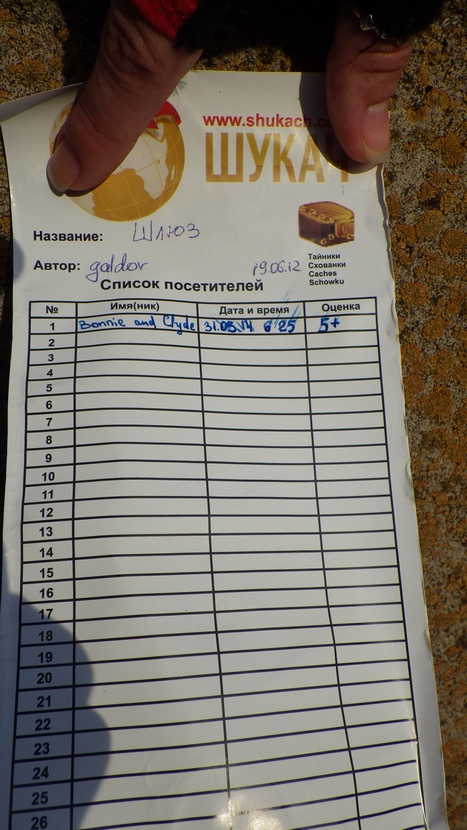 www.shukach.c
ШУКАЧ
Название: Шлюз
Автор: galdor 19.06.12
Тайники
Схованки
Caches
Schowku
Список посетителей
№ Имя(ник) Дата и время Оценка
1 Bonnie and Clyde 31.05.14 6 25 5+
2
3
4
5
6
7
8
9
10
11
12
13
14
15
16
17
18
19
20
21
22
23
24
25
26